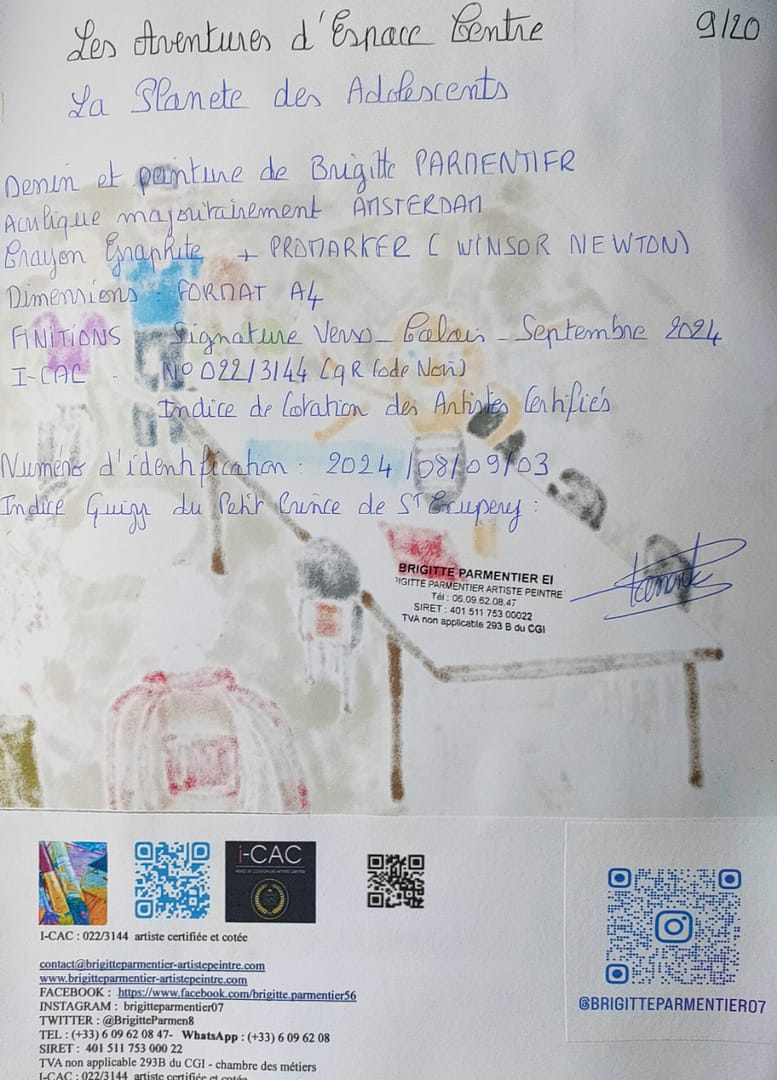 Les Aventures d'Espace Centre
9/20
La Planete des Adolescents
Dessin et peinture de Brigitte PARMENTIER
Acrylique majoritairement AMSTERDAM
Crayon Graphite + PROMARKER ( WINSOR NEWTON)
Dimensions : FORMAT A4
FINITIONS Signature Verso - Calais - Septembre 2024
I-CAC - N° 022/3144 (QR Code Noir)
Indice de Cotation des Artistes Certifiés
Numéro d'identification : 2024/08/09/03
Indice du Petit Prince de St Exupery :
BRIGITTE PARMENTIER EI
BRIGITTE PARMENTIER ARTISTE PEINTRE
Tél : 06.09.62.08.47
SIRET : 401 511 753 00022
TVA non applicable 293 B du CGI
i-CAC
I-CAC : 022/3144 artiste certifiée et cotée
contact@brigitteparmentier-artistepeintre.com
www.brigitteparmentier-artistepeintre.com
FACEBOOK : https://www.facebook.com/brigitte.parmentier56
INSTAGRAM : brigitteparmentier07
TWITTER : @BrigitteParmen8
TEL : (+33) 6 09 62 08 47- WhatsApp : (+33) 6 09 62 08
SIRET : 401 511 753 000 22
TVA non applicable 293B du CGI - chambre des métiers
I-CAC : 022/3144 artiste certifiée et cotée
@BRIGITTEPARMENTIER07